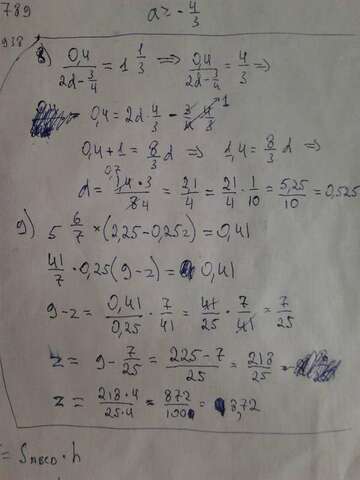 789
a = - 4/3
938
8) 0,4/(2d - 3/4) = 1 1/3 ⟹ 0,4/(2d - 3/4) = 4/3 ⟹
0,4 = 2d · 4/3 - 3/4 · 4/3 1
0,4 + 1 = 8/3 d ⟹ 1,4 = 8/3 d ⟹
0,7
d = 1,4 · 3/8 4 = 21/4 = 21/4 · 1/10 = 5,25/10 = 0,525
9) 5 6/7 × (2,25 - 0,25z) = 0,41
41/7 · 0,25(9 - z) = 0,41
9 - z = 0,41/0,25 · 7/41 = 41/25 · 7/41 = 7/25
z = 9 - 7/25 = 225 - 7/25 = 218/25
z = 218 · 4/25 · 4 = 872/100 = 8,72
= SABCD · h